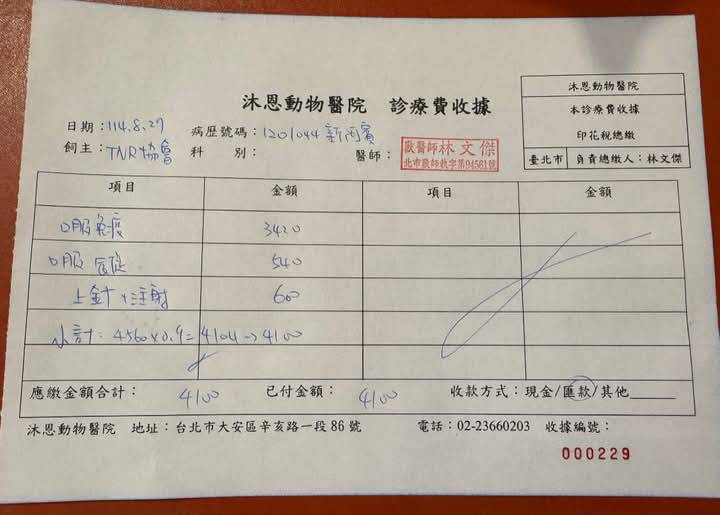 沐恩動物醫院 診療費收據
沐恩動物醫院
本診療費收據
印花稅總繳
臺北市 負責總繳人：林文傑
日期：114.8.27 病歷號碼：1201044
飼主：TNR協會 科 別： 醫師：
獸醫師林文傑
北市獸醫師執字第94581號
項目 金額 項目 金額
口服免疫 3420
口服 540
上針+注射 600
小計：4560x0.9=4104→4100
應繳金額合計： 4100 已付金額： 4100 收款方式：現金/匯款/其他
沐恩動物醫院 地址：台北市大安區辛亥路一段86號 電話：02-23660203 收據編號：
000229